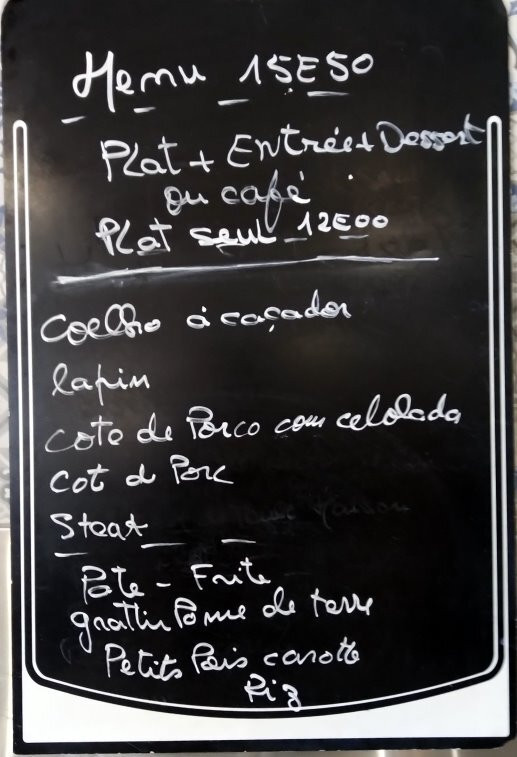 Menu 15E50
Plat + Entrée + Dessert
ou café
Plat seul 12E00
Coelho à caçador
lapin
cote de Porco com celolada
cot d Porc
Steak
Pate - Frite
grattin Pome de terre
Petits Pois carotte
Riz